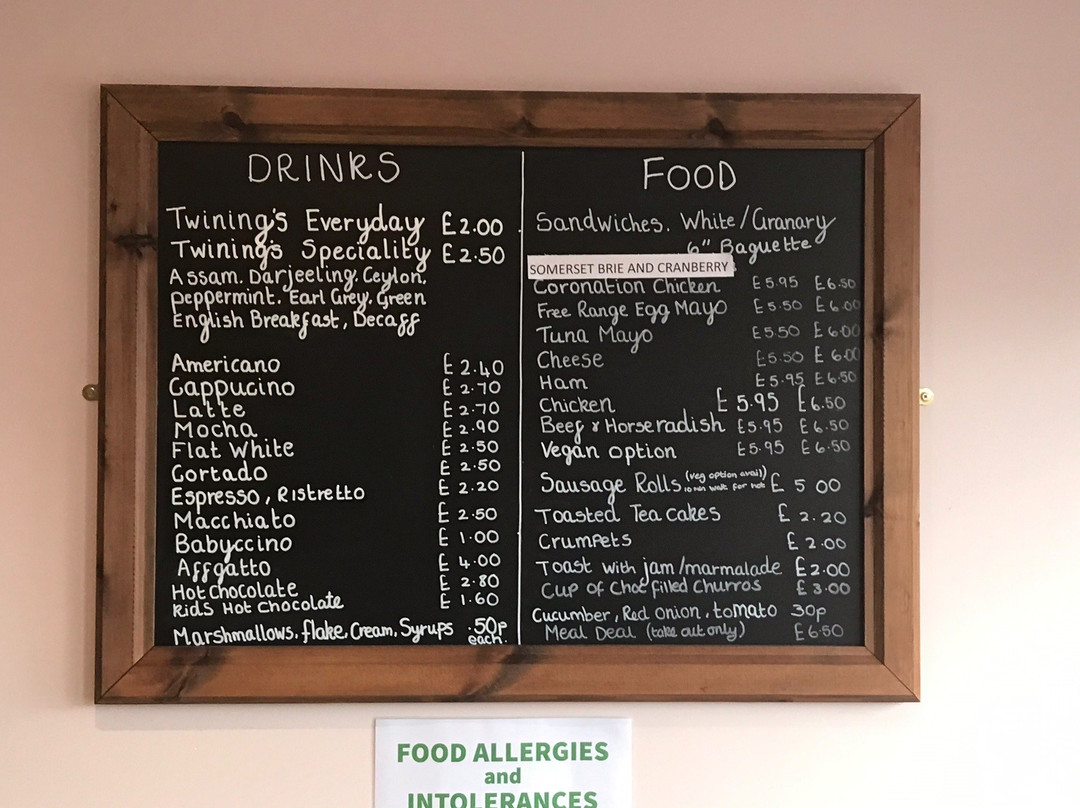 DRINKS
Twining's Everyday £2.00
Twining's Speciality £2.50
Assam. Darjeeling. Ceylon.
peppermint. Earl Grey. Green
English Breakfast, Decaff
Americano £2.40
Cappucino £2.70
Latte £2.70
Mocha £2.90
Flat White £2.50
Cortado £2.50
Espresso, Ristretto £2.20
Macchiato £2.50
Babyccino £1.00
Affgatto £4.00
Hot chocolate £2.80
Kids Hot Chocolate £1.60
Marshmallows, flake, Cream, Syrups .50p
each.
FOOD
Sandwiches. White/Granary
6" Baguette
SOMERSET BRIE AND CRANBERRY
Coronation Chicken £5.95 £6.50
Free Range Egg Mayo £5.50 £6.00
Tuna Mayo £5.50 £6.00
Cheese £5.50 £6.00
Ham £5.95 £6.50
Chicken £5.95 £6.50
Beef & Horseradish £5.95 £6.50
Vegan option £5.95 £6.50
Sausage Rolls (veg option avail) £5 00
10 min wait for hot
Toasted Tea cakes £2.20
Crumpets £2.00
Toast with jam/marmalade £2.00
Cup of Choc filled Churros £3.00
Cucumber, Red Onion, tomato 30p
Meal Deal (take out only) £6.50
FOOD ALLERGIES
and
INTOLERANCES